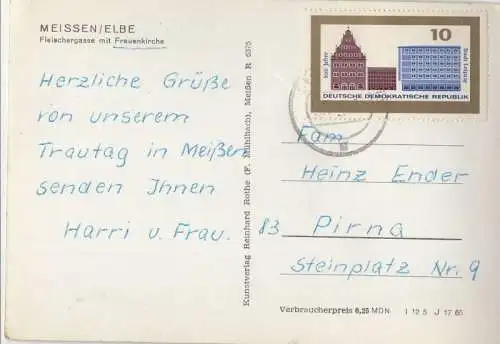 MEISSEN/ELBE
Fleischergasse mit Frauenkirche
Herzliche Grüße
von unserem
Trautag in Meißen
senden Ihnen
Harri u. Frau.
Kunstverlag Reinhard Rothe (F. Mühlbach), Meißen R 6375
800 Jahre
10
Stadt Leipzig
DEUTSCHE DEMOKRATISCHE REPUBLIK
Fam
Heinz Ender
83 Pirna
Steinplatz Nr. 9
Verbraucherpreis 0,25 MDN I 12 5 J 17 65